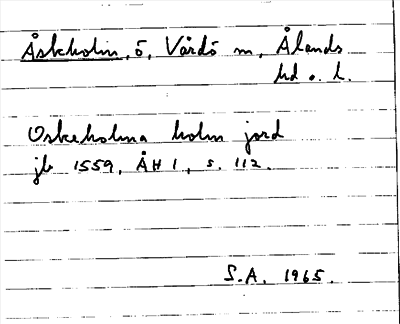 Åskholm, ö, Vårdö sn, Ålands
hd o. l.
Oskeholma holm jord
jb 1559, ÅH 1, s. 112.
S.A. 1965.